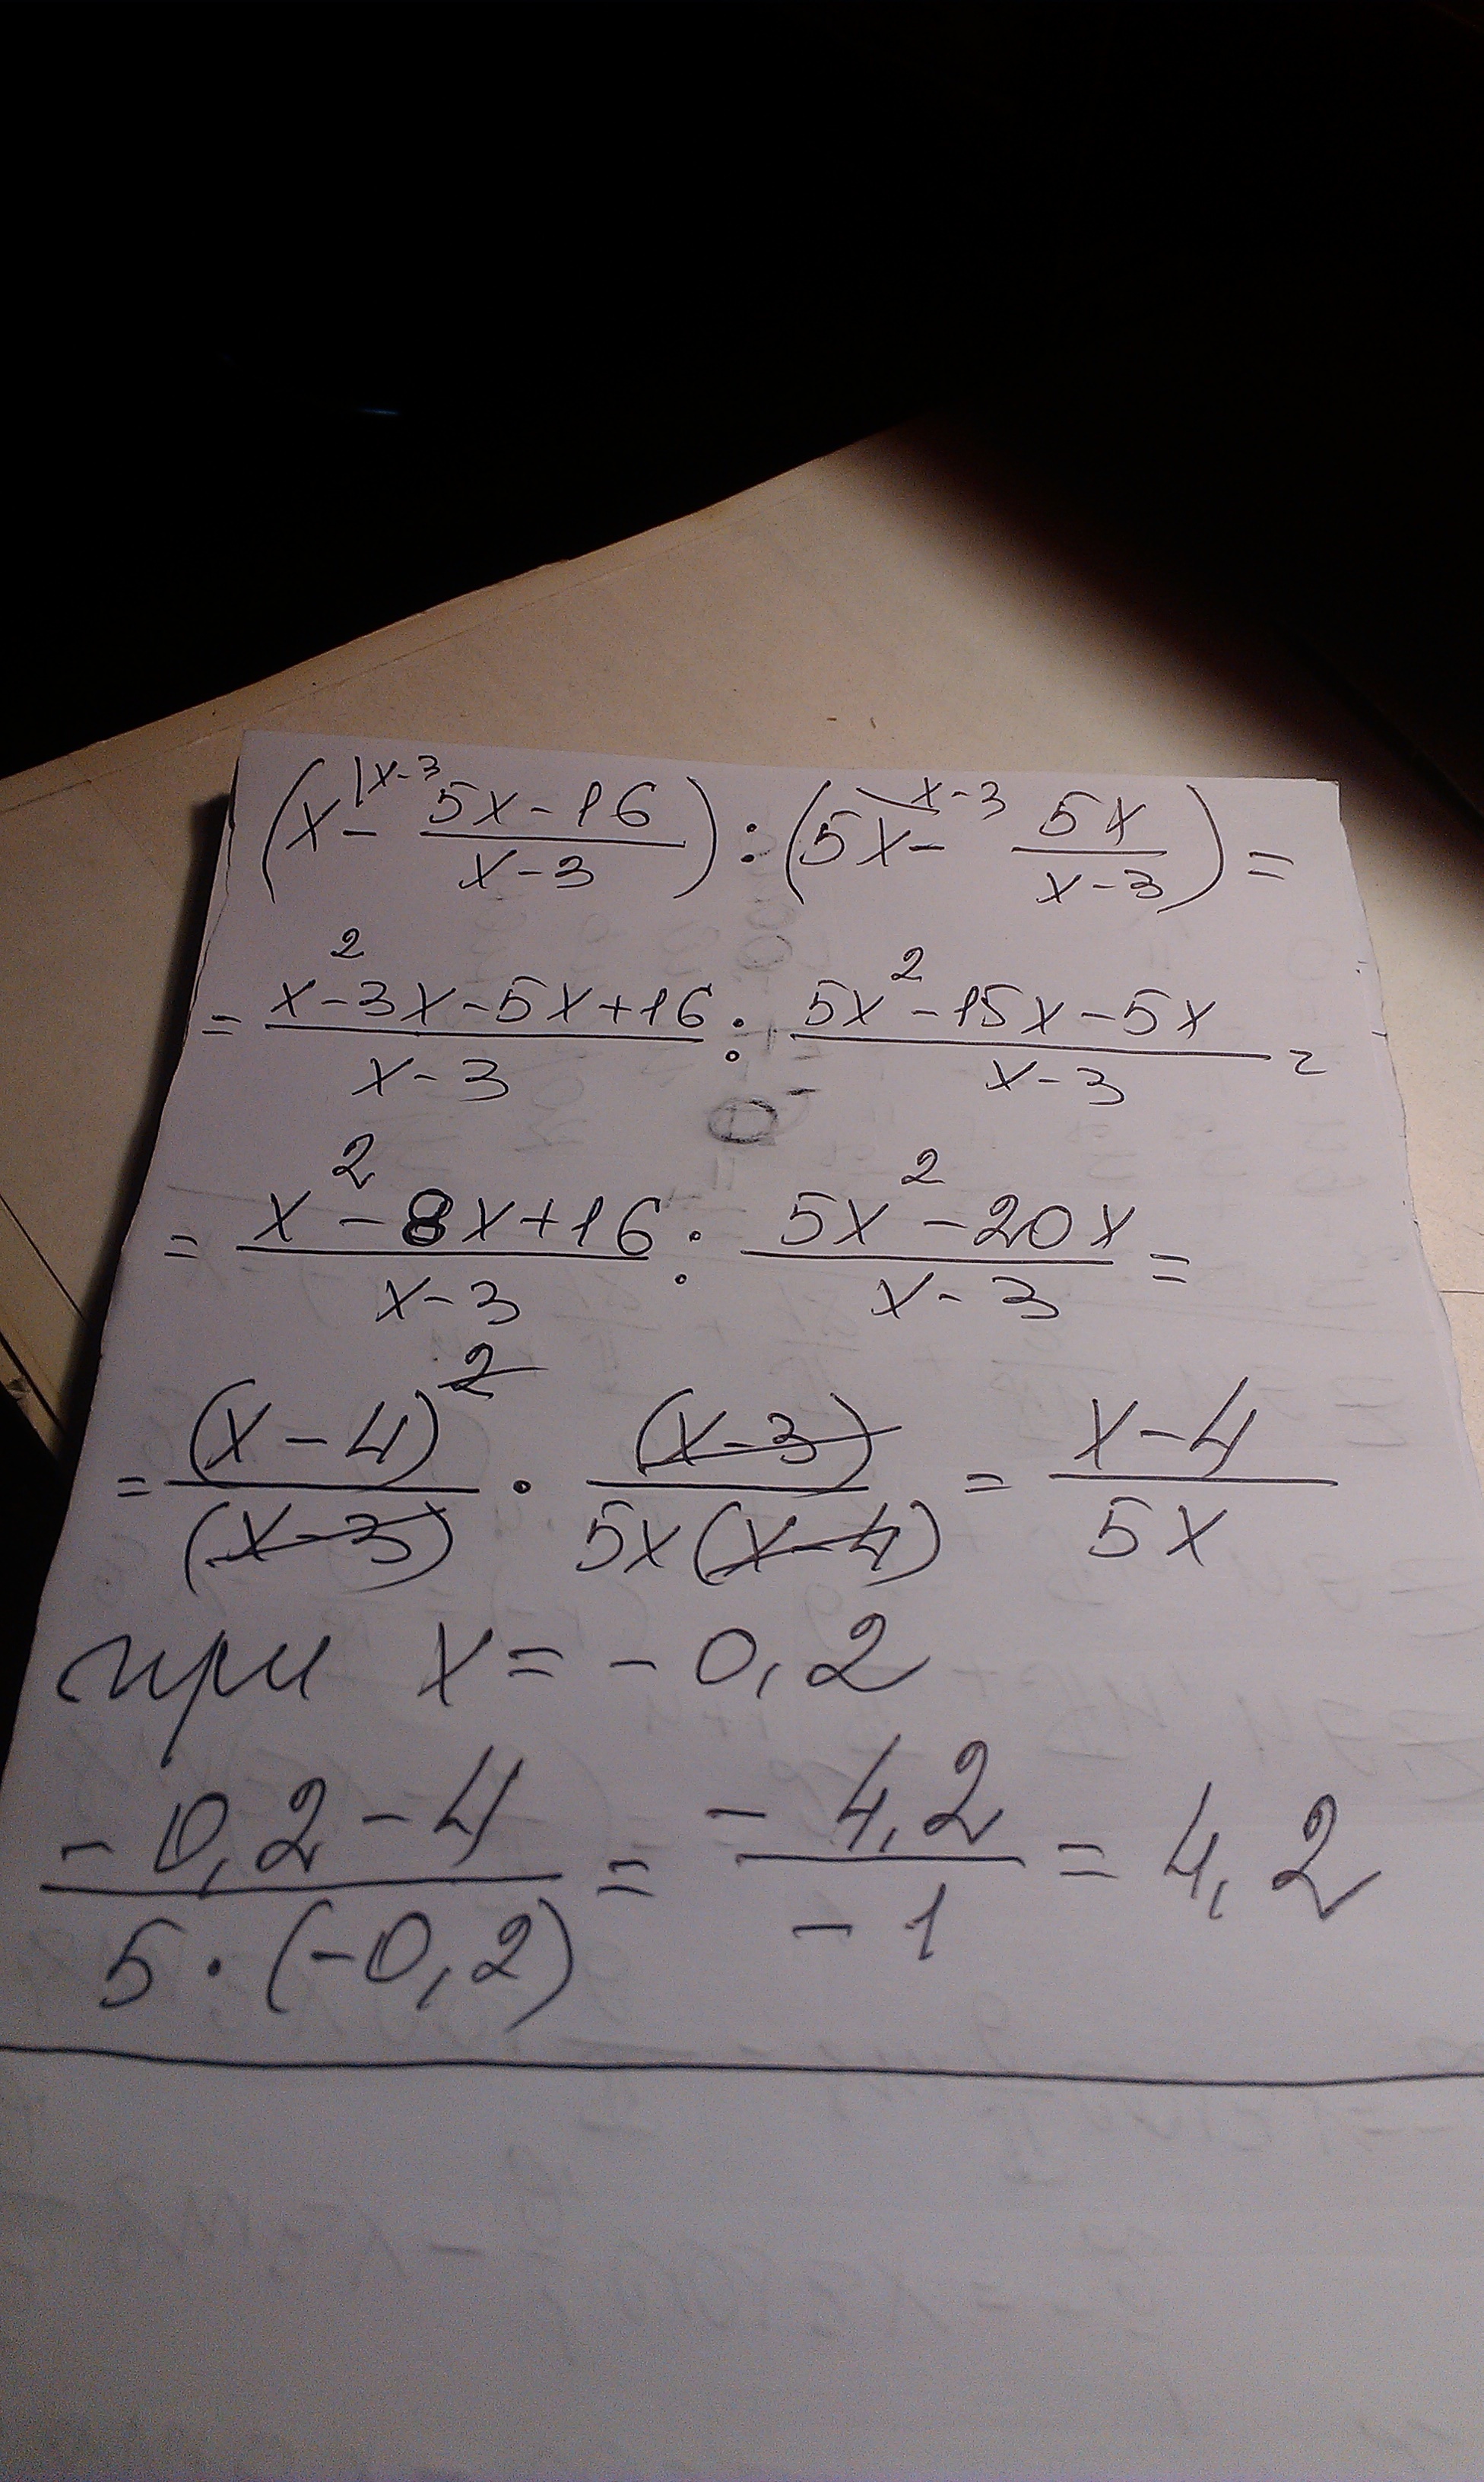 (x^{\x-3} - (5x-16)/(x-3)) : (5x^{\x-3} - 5x/(x-3)) =
= (x²-3x-5x+16)/(x-3) : (5x²-15x-5x)/(x-3) =
= (x²-8x+16)/(x-3) : (5x²-20x)/(x-3) =
= (x-4)²/(x-3) · (x-3)/(5x(x-4)) = (x-4)/(5x)
при x = -0,2
(-0,2-4)/(5·(-0,2)) = (-4,2)/(-1) = 4,2